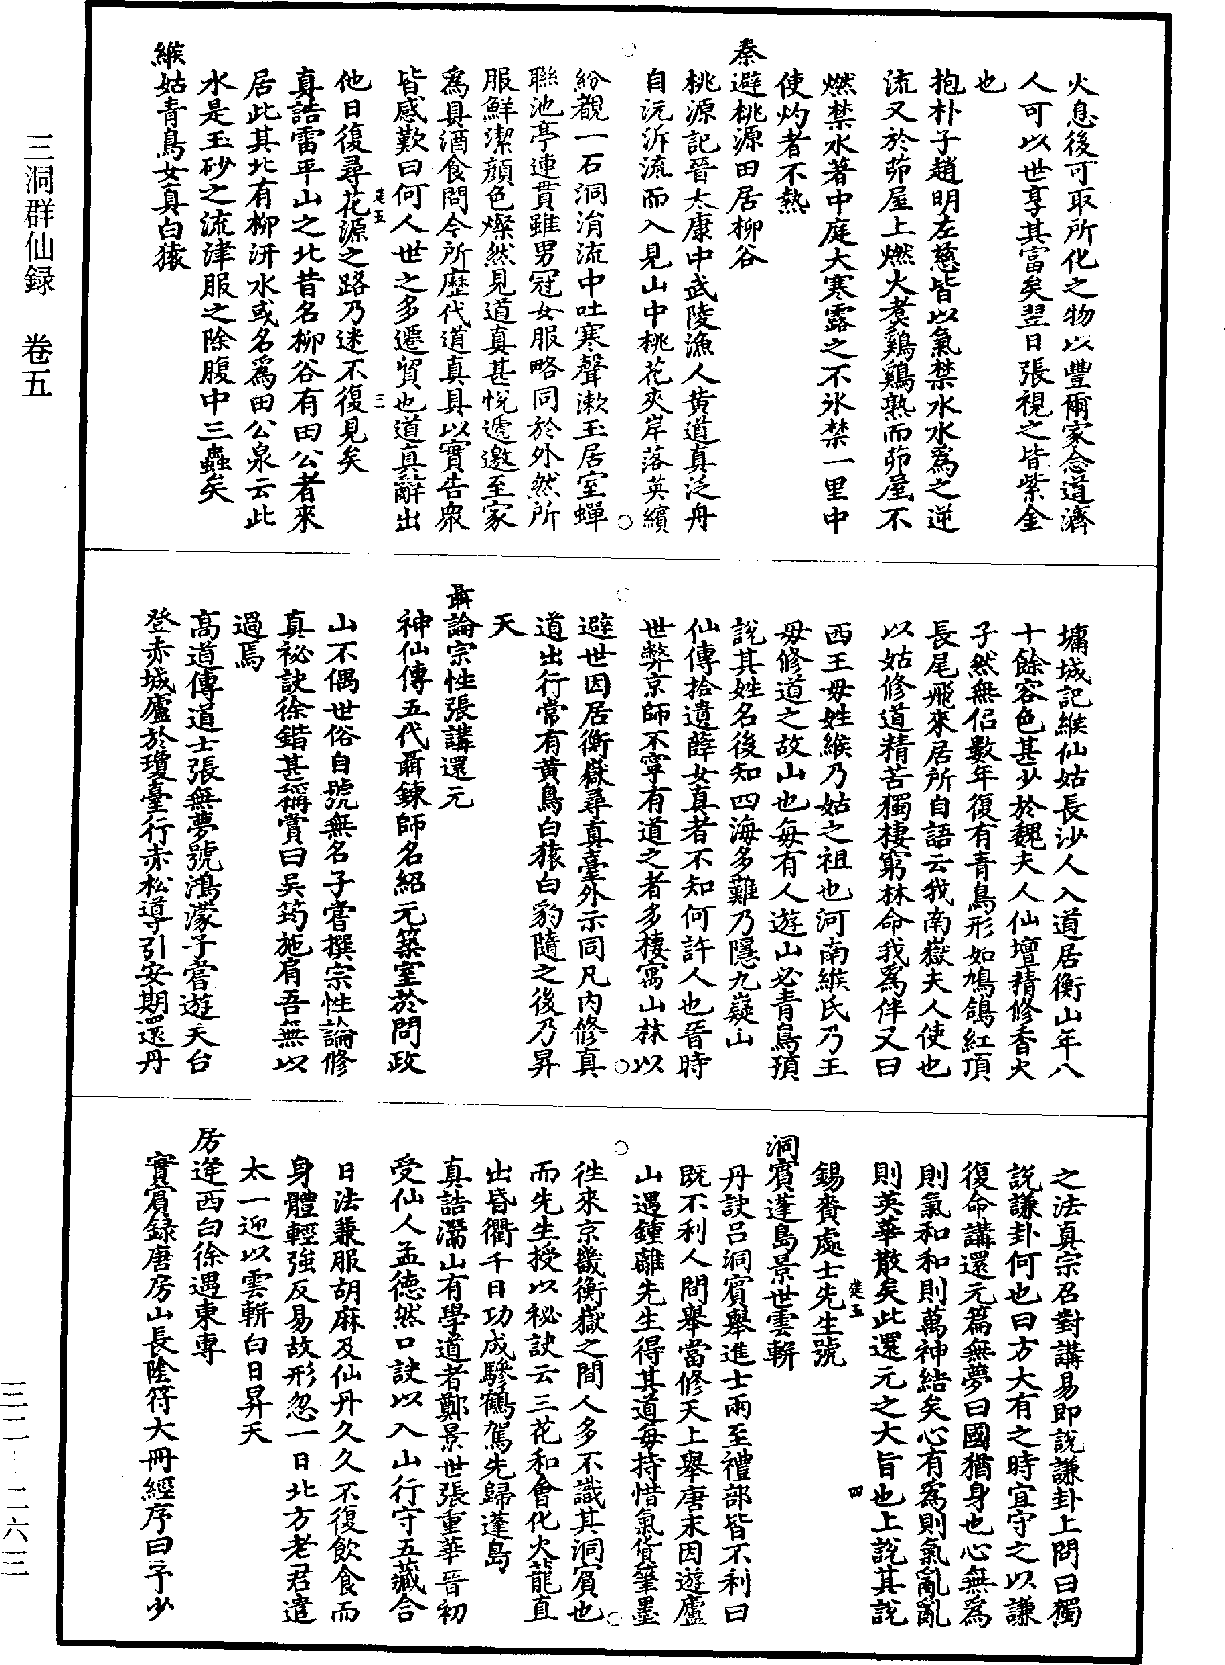 三洞群仙録　卷五
火息後可取所化之物以豐爾家念道濟
人可以世享其富矣翌日張視之皆紫金
也
抱朴子趙明左慈皆以氣禁水水爲之逆
流又於茆屋上燃火煑鷄鷄熟而茆屋不
燃禁水著中庭大寒露之不氷禁一里中
使灼者不熱
秦避桃源田居柳谷
桃源記晉太康中武陵漁人黄道真泛舟
自沅泝流而入見山中桃花夾岸落英繽
紛觀一石洞涓流中吐寒聲漱玉居室蟬
聮池亭連貫雖男冠女服略同於外然所
服鮮潔顔色燦然見道真甚悦遞邀至家
爲具酒食問今所歷代道真具以實告衆
皆感歎曰何人世之多遷貿也道真辭出
他日復尋花源之路乃迷不復見矣
真誥雷平山之北昔名柳谷有田公者來
居此其北有柳汧水或名爲田公泉云此
水是玉砂之流津服之除腹中三蟲矣
緱姑青鳥女真白猿
墉城記緱仙姑長沙人入道居衡山年八
十餘容色甚少於魏夫人仙壇精修香火
孑然無侣數年復有青鳥形如鳩鴿紅頂
長尾飛來居所自語云我南嶽夫人使也
以姑修道精苦獨棲窮林命我爲伴又曰
西王母姓緱乃姑之祖也河南緱氏乃王
母修道之故山也每有人遊山必青鳥預
説其姓名後知四海多難乃隱九嶷山
仙傳拾遺薛女真者不知何許人也晉時
世弊京師不寧有道之者多棲寓山林以
避世因居衡嶽尋真臺外示同凡内修真
道出行常有黄鳥白猿白豹隨之後乃昇
天
聶論宗性張講還元
神仙傳五代聶鍊師名紹元築室於問政
山不偶世俗自號無名子嘗撰宗性論修
真祕訣徐鍇甚稱賞曰吴筠施肩吾無以
過焉
高道傳道士張無夢號鴻濛子嘗遊天台
登赤城廬於瓊臺行赤松導引安期還丹
之法真宗召對講易即説謙卦上問曰獨
説謙卦何也曰方大有之時宜守之以謙
復命講還元篇無夢曰國猶身也心無爲
則氣和和則萬神結矣心有爲則氣亂亂
則英華散矣此還元之大旨也上説其説
錫賚處士先生號
洞賓蓬島景世雲軿
丹訣吕洞賓舉進士兩至禮部皆不利曰
既不利人間舉當修天上舉唐末因遊廬
山遇鍾離先生得其道每持惜氣貨筆墨
徃來京畿衡嶽之間人多不識其洞賓也
而先生授以秘訣云三花和會化火龍直
出昏衢千日功成驂鶴駕先歸蓬島
真誥灊山有學道者鄭景世張重華晉初
受仙人孟德然口訣以入山行守五藏合
日法兼服胡麻及仙丹久久不復飲食而
身體輕強反易故形忽一日北方老君遣
太一迎以雲軿白日昇天
房遊西白徐遇東專
實賓録唐房山長陰符大冊經序曰予少
三二-二六三